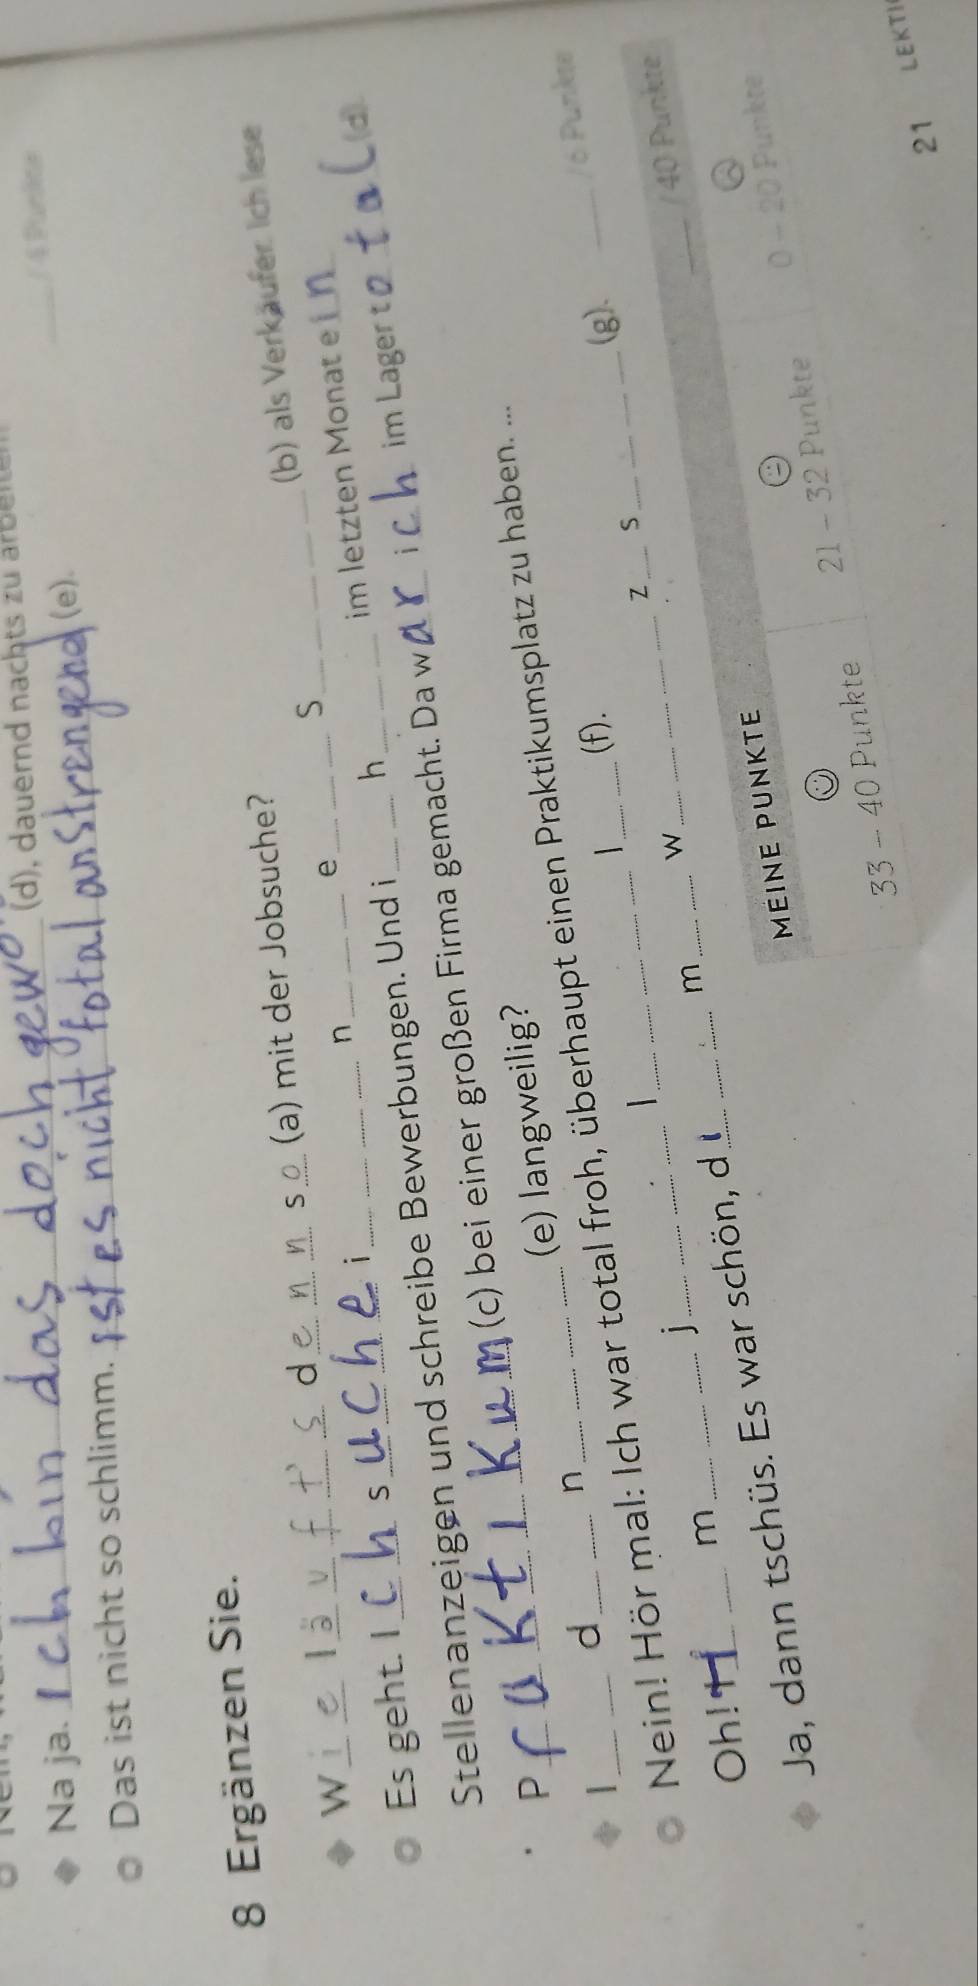 / 4 Punkte
(d), dauernd nachts zu arbeiten
Na ja. Ich bin das doch gewo
Das ist nicht so schlimm. ist es nicht total anstrengend (e).
8 Ergänzen Sie.
Wie läuft's denn so (a) mit der Jobsuche?
Es geht. Ich suche i_ n_ e_ S_ (b) als Verkäufer. Ich lese
Stellenanzeigen und schreibe Bewerbungen. Und i_ h_ im letzten Monat ein
Praktikum (c) bei einer großen Firma gemacht. Da war ich im Lager total (d).
I_ d_ n_ (e) langweilig?
Nein! Hör mal: Ich war total froh, überhaupt einen Praktikumsplatz zu haben. ...
Oh! H_ m_ j_ l_ l_ (f).
Ja, dann tschüs. Es war schön, di_ m_ w_ z_ s_ (g).
/ 6 Punkte
MEINE PUNKTE
/ 40 Punkte
33 – 40 Punkte
21 – 32 Punkte
0 – 20 Punkte
21
LEKTI